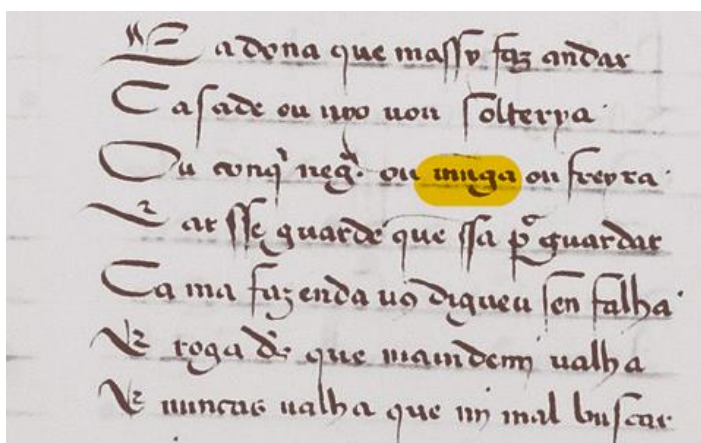 E a dona que massy faz andar
Casade ou uyo uou solteyra
Ou conq̃ negª. ou miiga ou freyra
E ar sse guarde que ssa pᵃ guardar
Ca ma fazenda uo9 digueu sen falha
E roga ds̃ que maindemi ualha
E nuncas ualha que mi mal buscar